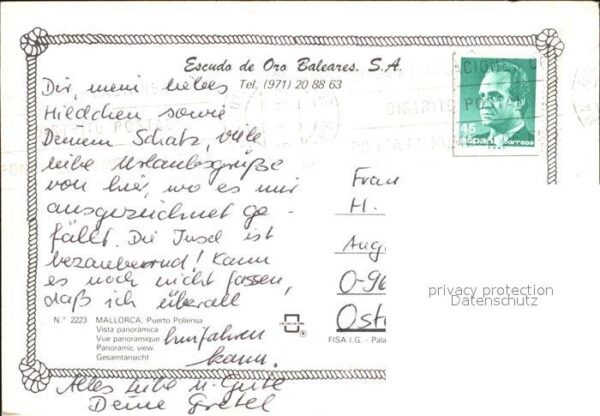 Escudo de Oro Baleares, S.A.
Tel. (971) 20 88 63
Dir, mein liebes
Hildchen sowie
Deinem Schatz, viele
liebe Urlaubsgrüße
von hier, wo es mir
ausgezeichnet ge-
fällt. Die Insel ist
bezaubernd! Kann
es noch nicht fassen,
daß ich überall
hinfahren
kann.
Alles Liebe u. Gute
Deine Gretel
N.° 2223 MALLORCA. Puerto Pollensa
Vista panorámica
Vue panoramique
Panoramic view
Gesamtansicht
FISA I.G. - Pala
45
España
correos
DISTRITO POSTAL
Frau
H.
Aug.
O-96
Ost
privacy protection
Datenschutz